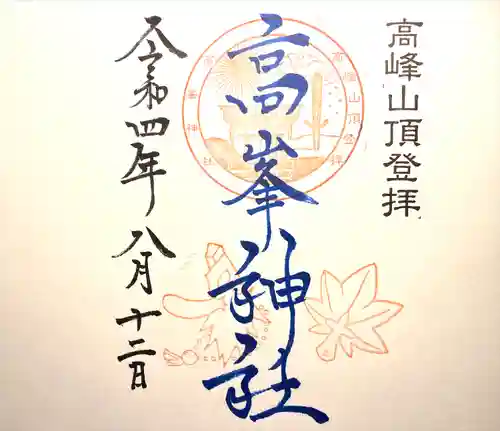 高峰山頂登拝
高峯神社
高峰山頂登拝
令和四年八月十二日